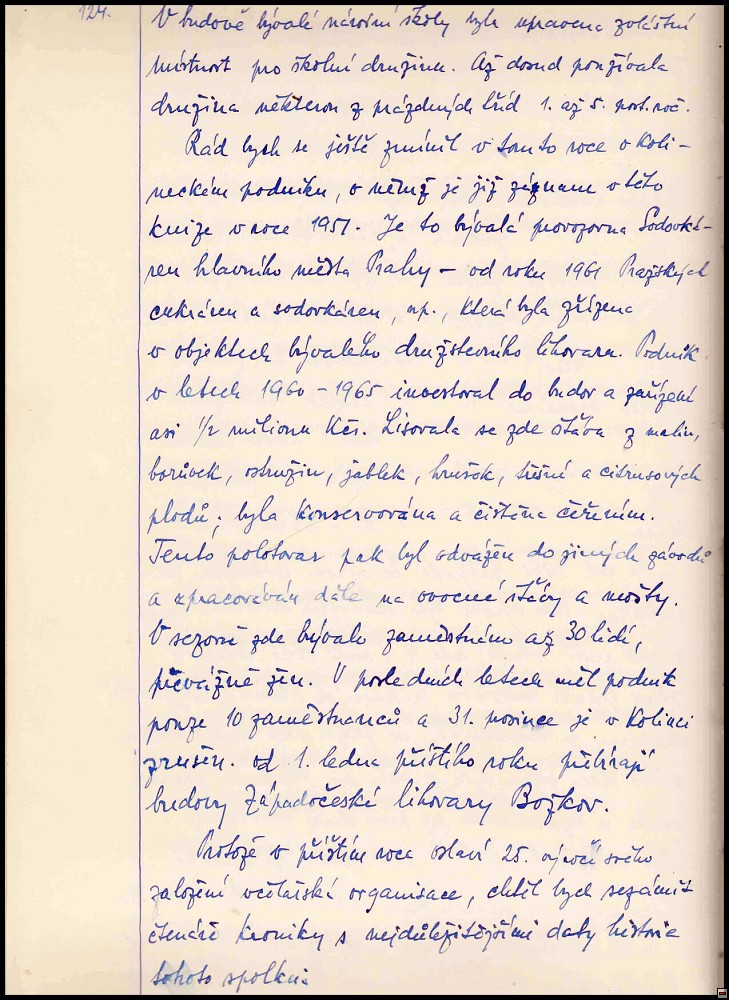 124.
V budově bývalé národní školy byla upravena zvláštní
místnost pro školní družinu. Až dosud používala
družina některou z prázdných tříd 1. až 5. post. roč.
Rád bych se ještě zmínil v tomto roce o koli-
neckém podniku, o němž je již záznam v této
knize v roce 1951. Je to bývalá provozovna Sodovká-
ren hlavního města Prahy – od roku 1961 Pražských
cukráren a sodovkáren, n.p., která byla zřízena
v objektech bývalého družstevního lihovaru. Podnik
v letech 1960 – 1965 investoval do budov a zařízení
asi 1/2 milionu Kčs. Lisovala se zde šťáva z malin,
borůvek, ostružin, jablek, hrušek, třešní a citrusových
plodů; byla konservována a čištěna čeřením.
Tento polotovar pak byl odvážen do jiných závodů
a zpracováván dále na ovocné šťávy a mošty.
V sezoně zde bývalo zaměstnáno až 30 lidí,
převážně žen. V posledních letech měl podnik
pouze 10 zaměstnanců a 31. prosince je v Kolinci
zrušen. od 1. ledna příštího roku přebírají
budovy Západočeské lihovary Božkov.
Protože v příštím roce oslaví 25. výročí svého
založení včelařská organisace, chtěl bych seznámit
čtenáře kroniky s nejdůležitějšími daty historie
tohoto spolku: